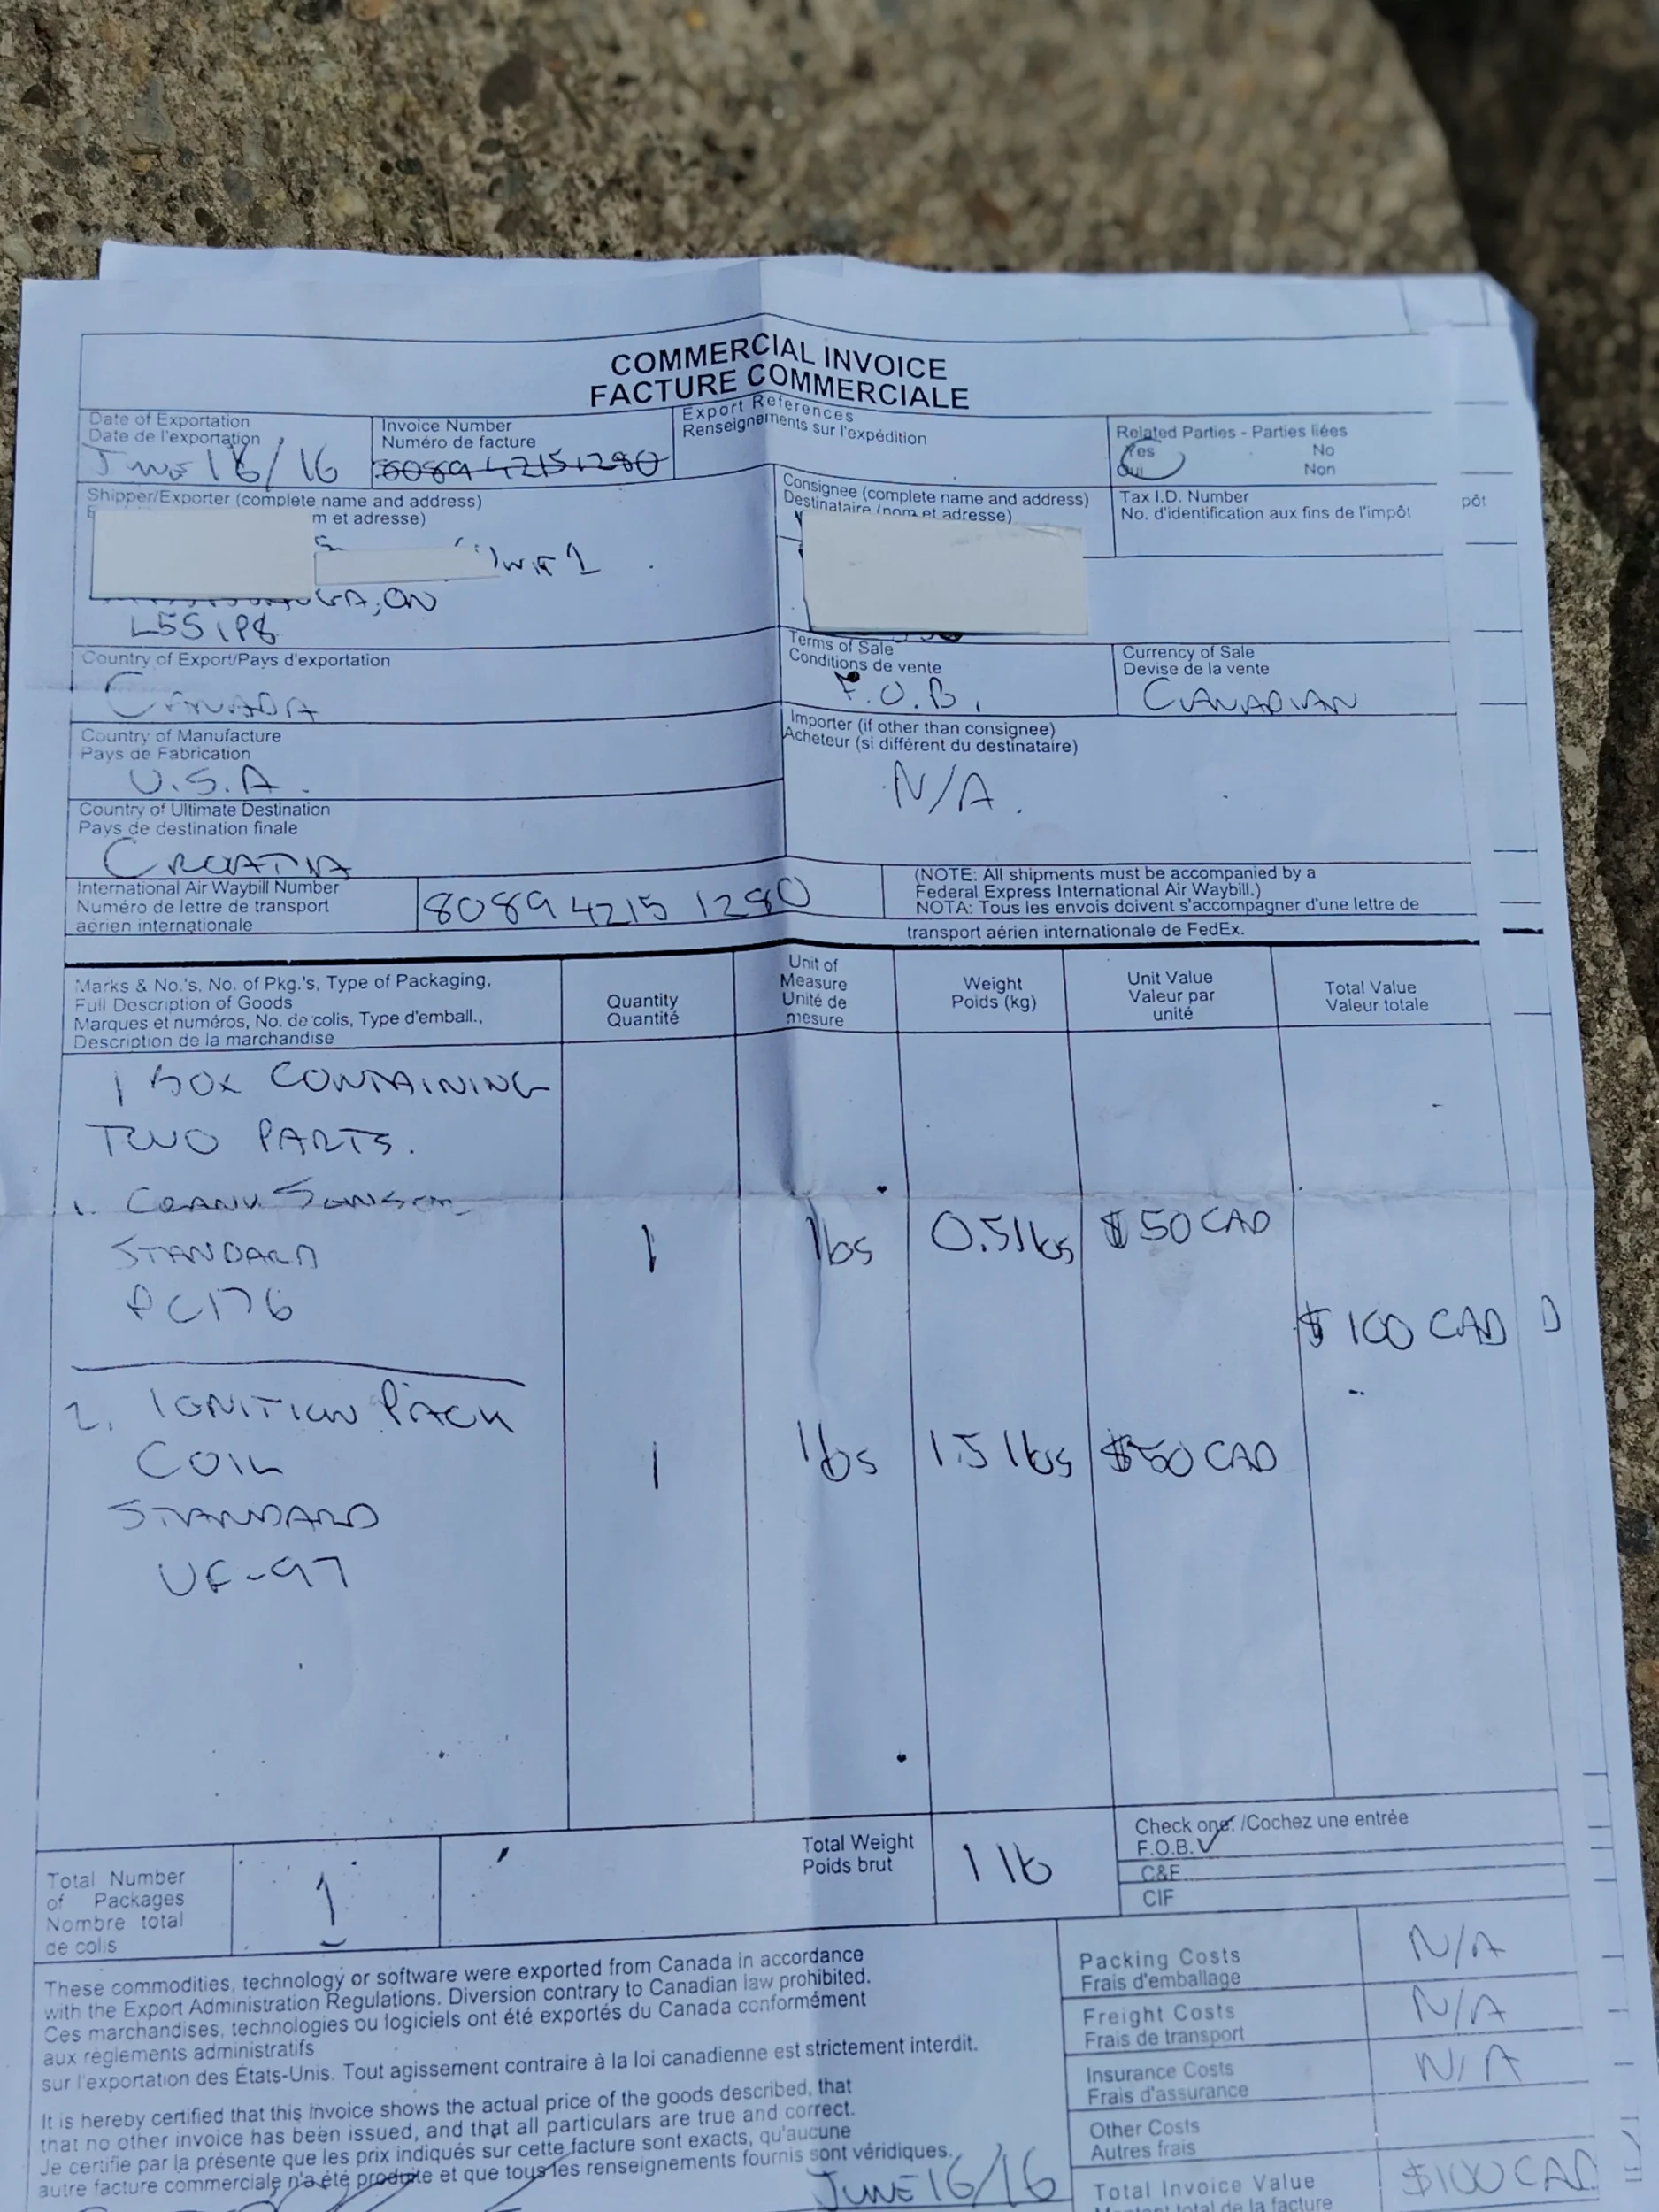 COMMERCIAL INVOICE
FACTURE COMMERCIALE
Date of Exportation
Date de l'exportation
JUNE 16/16
Invoice Number
Numéro de facture
8089 4215 1280
Export References
Renseignements sur l'expédition
Related Parties - Parties liées
Yes No
Oui Non
Shipper/Exporter (complete name and address)
m et adresse)
GA, ON
L5S 1P8
Consignee (complete name and address)
Destinataire (nom et adresse)
Tax I.D. Number
No. d'identification aux fins de l'impôt
pôt
Country of Export/Pays d'exportation
CANADA
Terms of Sale
Conditions de vente
F.O.B.
Currency of Sale
Devise de la vente
CANADIAN
Country of Manufacture
Pays de Fabrication
U.S.A.
Importer (if other than consignee)
Acheteur (si différent du destinataire)
N/A.
Country of Ultimate Destination
Pays de destination finale
CROATIA
International Air Waybill Number
Numéro de lettre de transport
aérien internationale
8089 4215 1280
(NOTE: All shipments must be accompanied by a
Federal Express International Air Waybill.)
NOTA: Tous les envois doivent s'accompagner d'une lettre de
transport aérien internationale de FedEx.
Marks & No.'s, No. of Pkg.'s, Type of Packaging,
Full Description of Goods
Marques et numéros, No. de colis, Type d'emball.,
Description de la marchandise
Quantity
Quantité
Unit of
Measure
Unité de
mesure
Weight
Poids (kg)
Unit Value
Valeur par
unité
Total Value
Valeur totale
1 BOX CONTAINING
TWO PARTS.
1. CRANK SENSOR
STANDARD
PC176
1 lbs 0.5 lbs $50 CAD
$100 CAD D
2. IGNITION PACK
COIL
STANDARD
UF-97
1 lbs 1.5 lbs $50 CAD
Total Number
of Packages
Nombre total
de colis
1
Total Weight
Poids brut
1 lb
Check one: /Cochez une entrée
F.O.B.
C&F
CIF
These commodities, technology or software were exported from Canada in accordance
with the Export Administration Regulations. Diversion contrary to Canadian law prohibited.
Ces marchandises, technologies ou logiciels ont été exportés du Canada conformément
aux règlements administratifs
sur l'exportation des États-Unis. Tout agissement contraire à la loi canadienne est strictement interdit.
It is hereby certified that this invoice shows the actual price of the goods described, that
that no other invoice has been issued, and that all particulars are true and correct.
Je certifie par la présente que les prix indiqués sur cette facture sont exacts, qu'aucune
autre facture commerciale n'a été produite et que tous les renseignements fournis sont véridiques.
JUNE 16/16
Packing Costs
Frais d'emballage
N/A
Freight Costs
Frais de transport
N/A
Insurance Costs
Frais d'assurance
N/A
Other Costs
Autres frais
Total Invoice Value
Montant total de la facture
$100 CAD